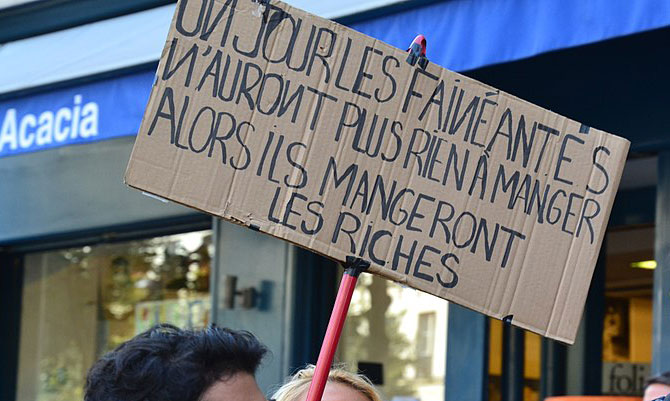 UN JOUR LES FAINÉANT.E.S
N'AURONT PLUS RIEN À MANGER
ALORS ILS MANGERONT
LES RICHES
Acacia
foli